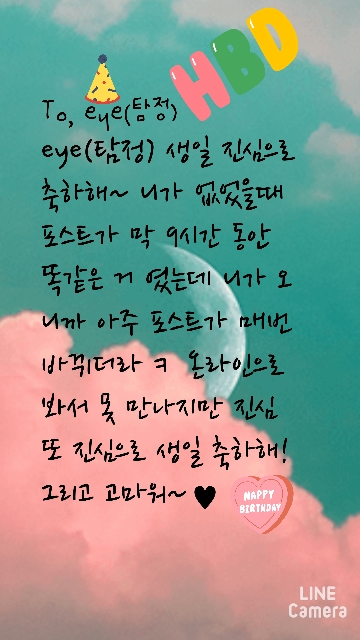 HBD
To, eye(탐정)
eye(탐정) 생일 진심으로
축하해~ 니가 없었을때
포스트가 막 9시간 동안
똑같은 거 였는데 니가 오
니까 아주 포스트가 매번
바뀌더라 ㅋ 온라인으로
봐서 못 만나지만 진심
또 진심으로 생일 축하해!
그리고 고마워~ ♥
HAPPY
BIRTHDAY
LINE
Camera